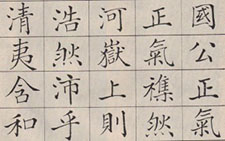 國公正氣
正氣襍然
河嶽上則
浩然沛乎
清夷含和